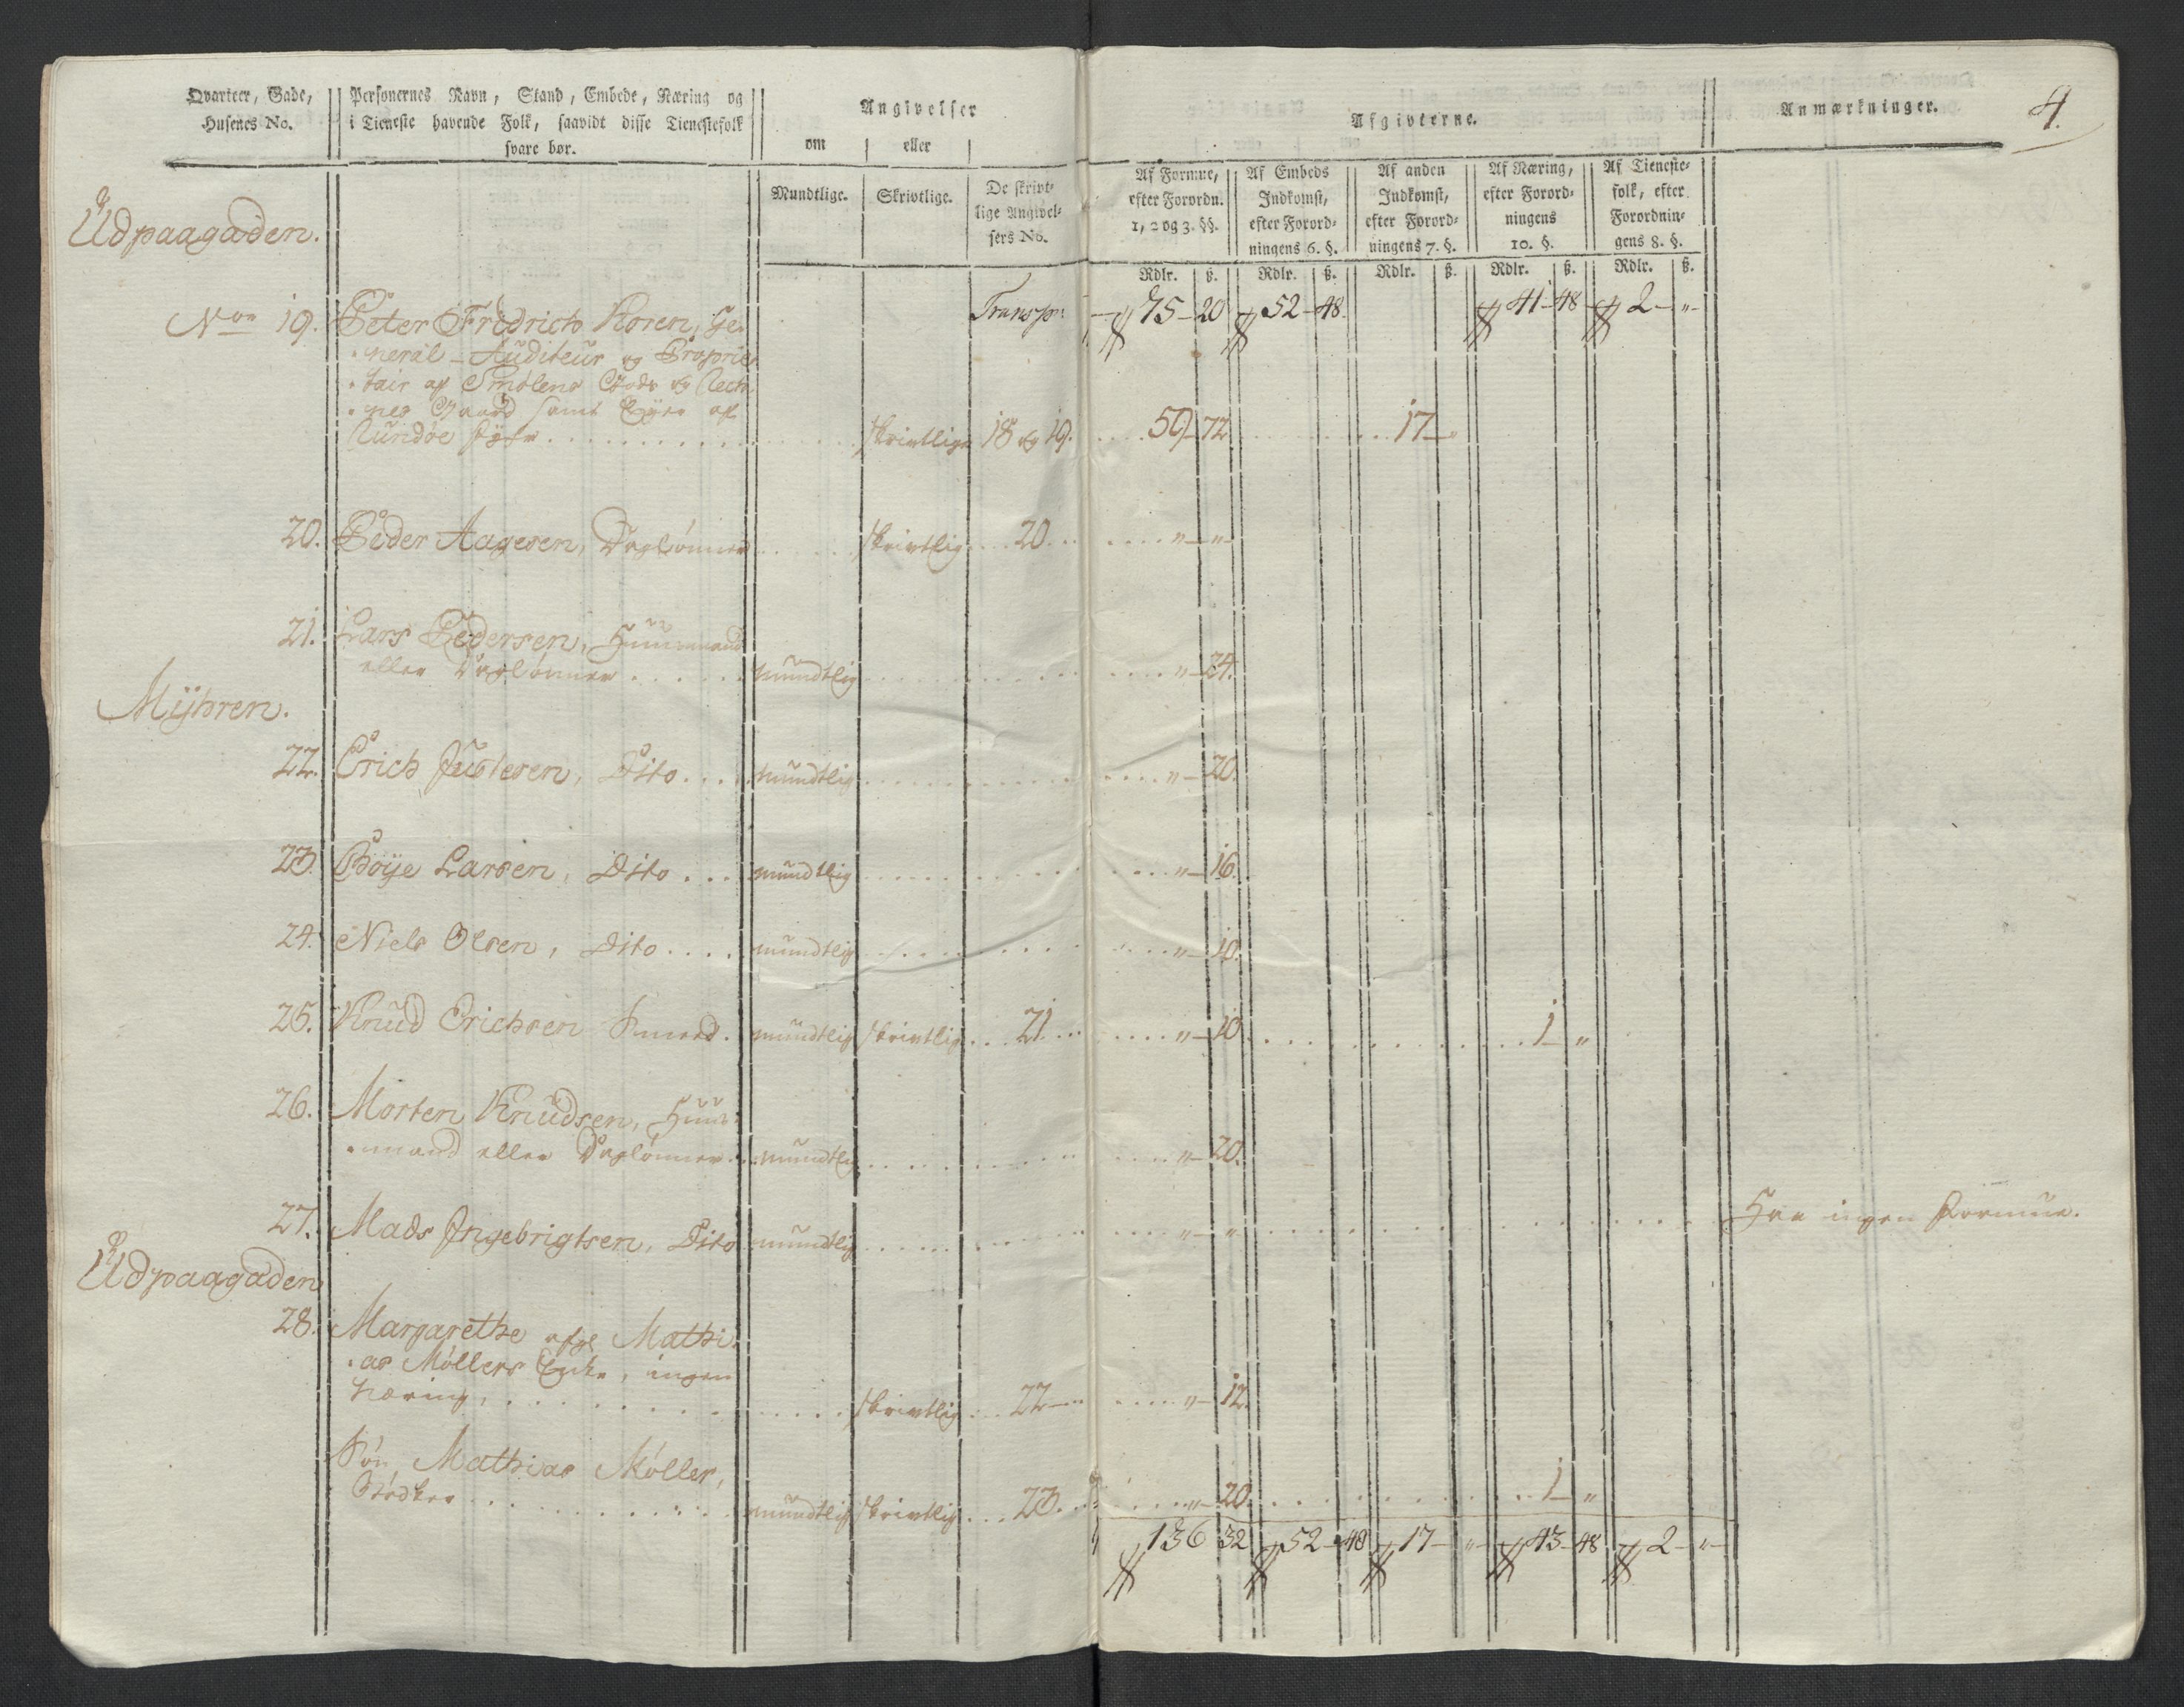 Qvarteer, Gade,
Husenes No.
Personernes Navn, Stand, Embede, Næring og
i Tieneste havende Folk, saavidt disse Tienestefolk
svare bør.
Angivelser
om eller
Mundtlige. Skrivtlige. De skrivt-
lige Angivel-
sers No.
Afgivterne.
Anmærkninger.
4.
Af Formue,
efter Forordn.
1, 2 og 3. §§.
Af Embeds
Indkomst,
efter Forord-
ningens 6. §.
Af anden
Indkomst,
efter Forord-
ningens 7. §.
Af Næring,
efter Forord-
ningens
10. §.
Af Tieneste-
folk, efter
Forordnin-
gens 8. §.
Rdlr. ß. Rdlr. ß. Rdlr. ß. Rdlr. ß. Rdlr. ß.
Udpaagaden.
Transp: 75-20 52-48. 41-48 2-"-
Nor 19. Peter Fridrich Koren, Ge-
neral-Auditeur og Proprie-
tair af Smølens Gods og
Gaard samt Eyer af
skrivtlige 18 og 19. 59-72 17-"
20. Peder Aagesen, Daglønner skrivtlig 20 "-"-
21. Lars Pedersen, Huusmand
eller Daglønner mundtlig "-24.
Mÿhren.
22. Erich Justesen, Dito mundtlig "-20.
23. Boÿe Larsen, Dito mundtlig "-16.
24. Niels Olsen, Dito mundtlig "-10.
25. Knud Erichsen Smed mundtlig skrivtlig 21 "-10 1-"
26. Morten Knudsen, Huus-
mand eller Daglønner mundtlig "-20.
27. Mads Ingebrigtsen, Dito mundtlig "-" Har ingen Formue.
Udpaagaden
28. Margarethe afg: Mathi-
as Møllers Enke, ingen
Næring, skrivtlig 22 "-12.
Søn Mathias Møller,
Bødker mundtlig skrivtlig 23. "-20. 1-"
136 32 52-48 17-"- 43-48 2-"-